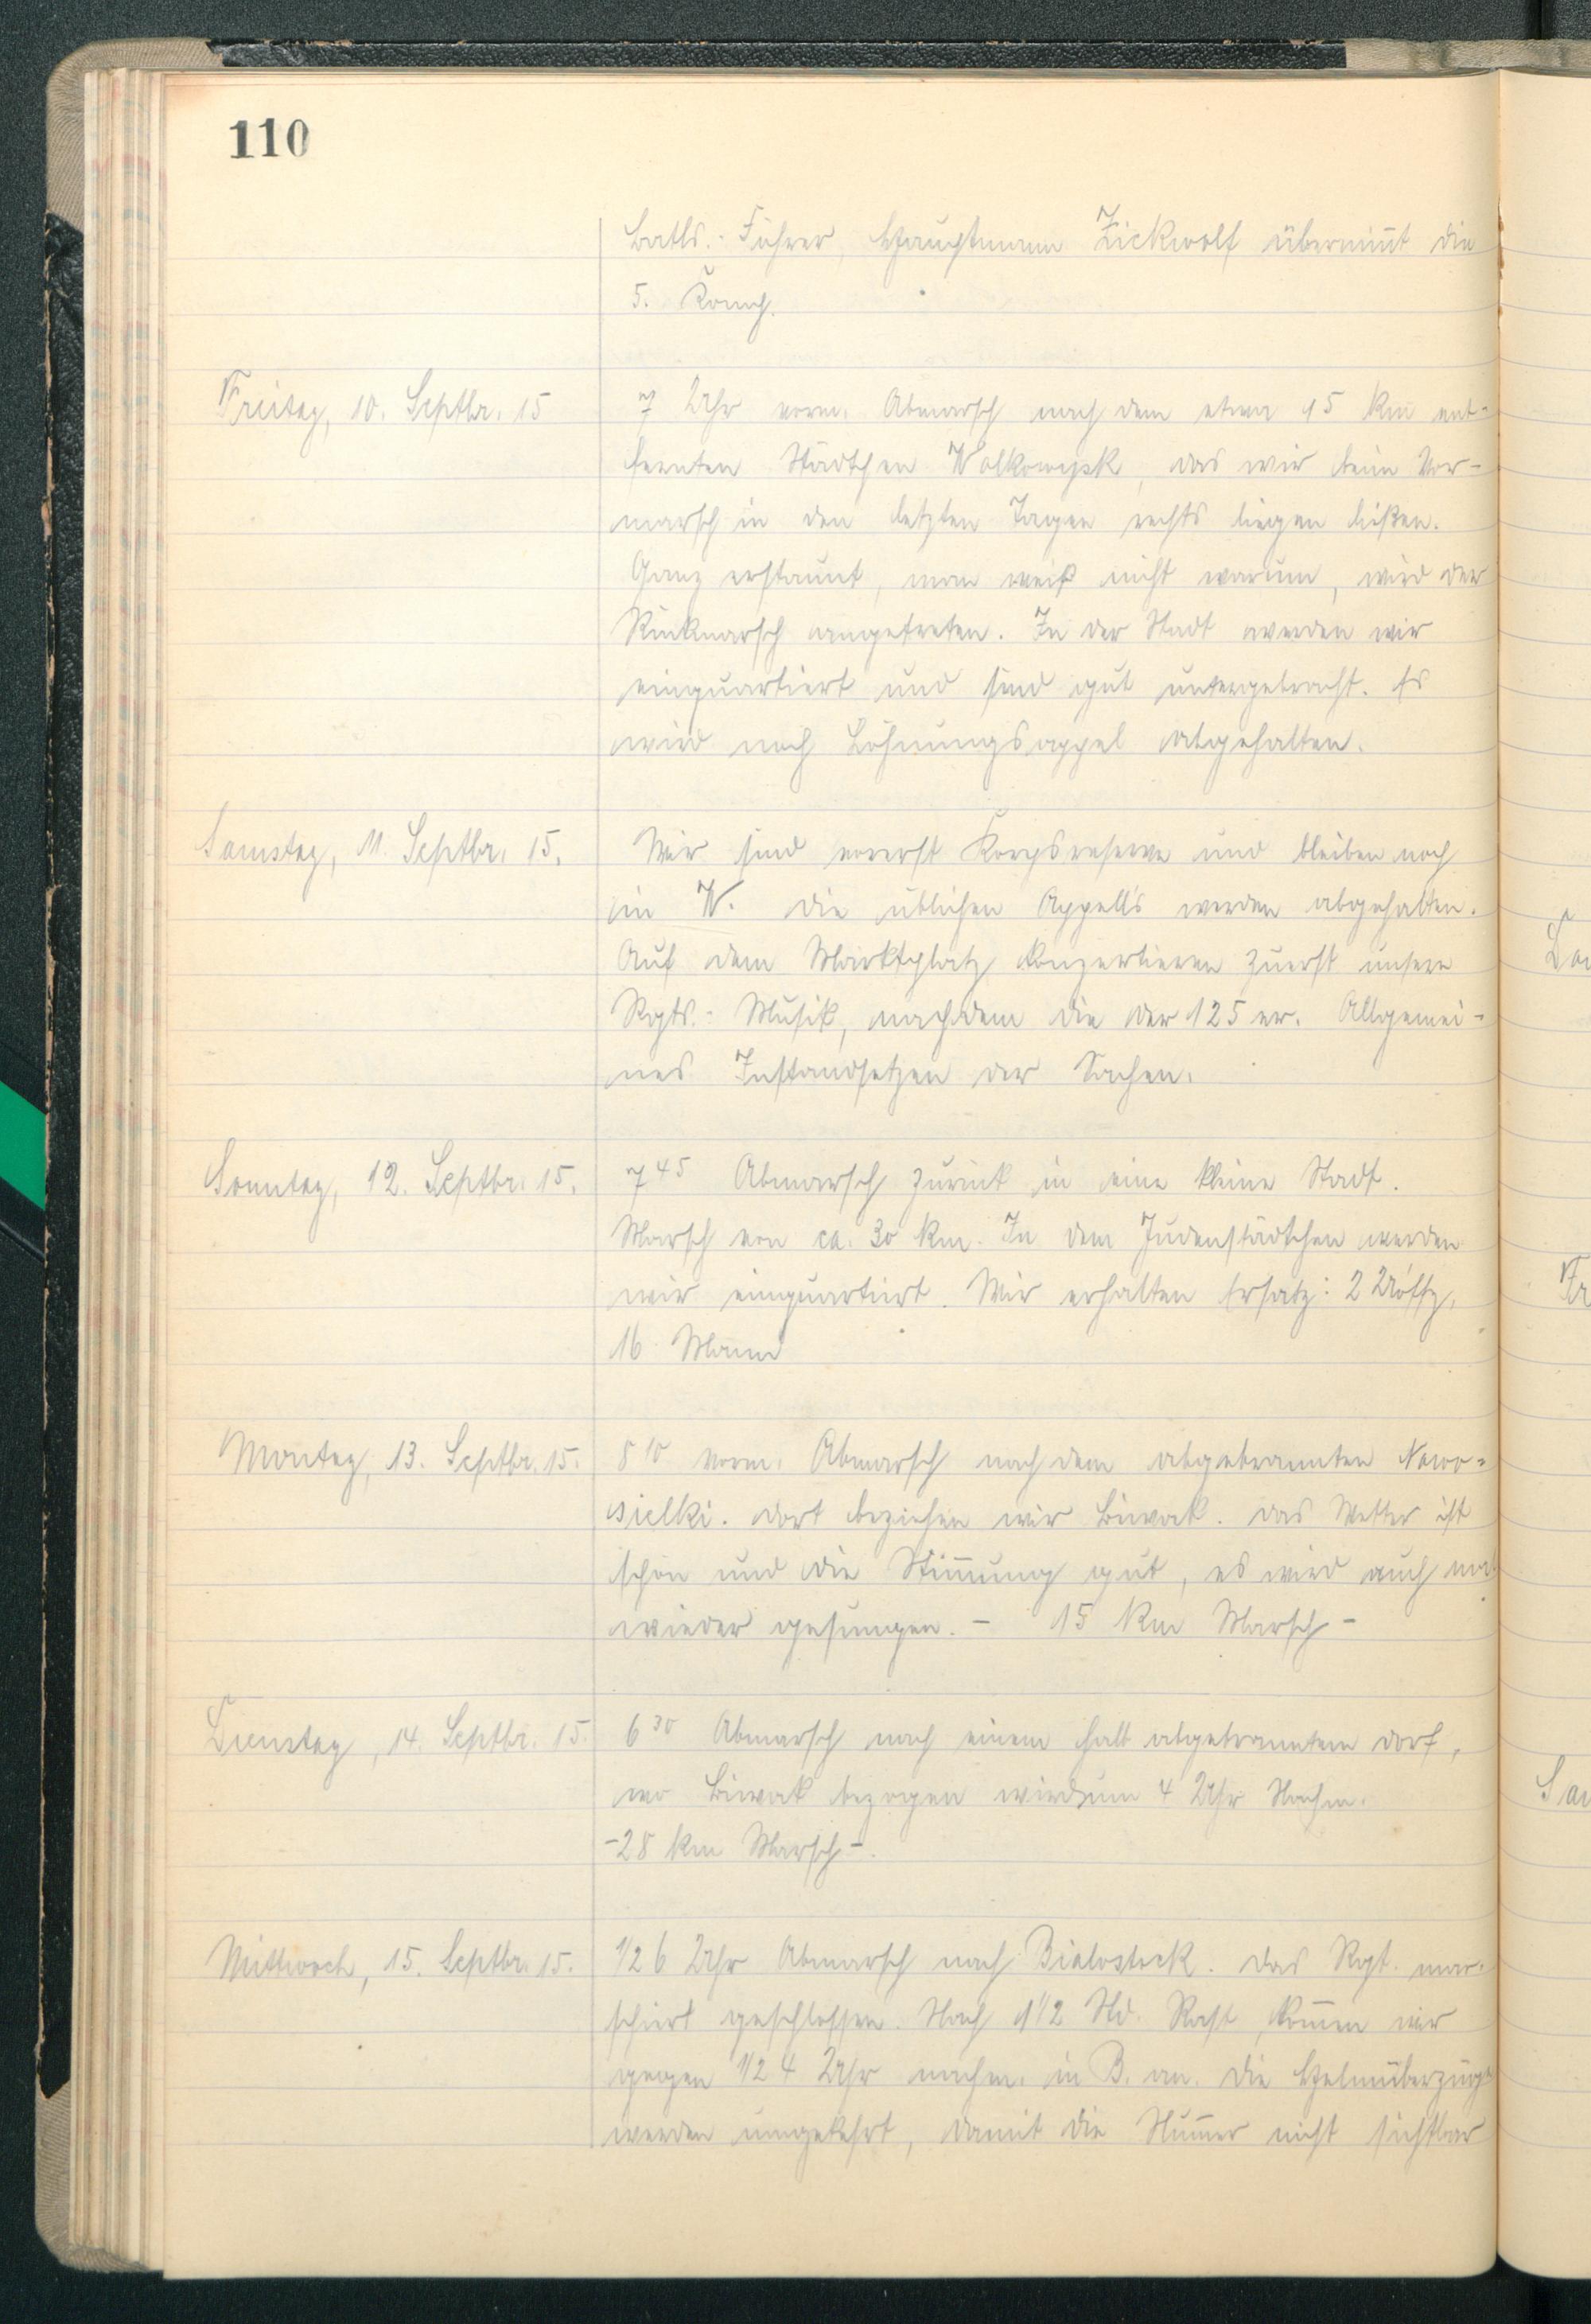 110
Batls.-Führer, Hauptmann Zickwolf übernim̅t die
5. Komp.
Freitag, 10. Septbr. 15
7 Uhr vorm. Abmarsch nach dem etwa 15 km ent-
fernten Städtchen Wolkowysk, das wir beim Vor-
marsch in den letzten Tagen rechts liegen ließen.
Ganz erstaunt, man weiß nicht warum, wird der
Rückmarsch angetreten. In der Stadt werden wir
einquartiert und sind gut untergebracht. Es
wird noch Löhnungsappel abgehalten.
Samstag, 11. Septbr. 15.
Wir sind vorerst Korpsreserve und bleiben noch
in W. Die üblichen Appells werden abgehalten.
Auf dem Marktplatz konzertieren zuerst unsere
Rgts.-Musik, nachdem die der 125er. Allgemei-
nes Instandsetzen der Sachen.
Sonntag, 12. Septbr. 15.
7 45 Abmarsch zurück in eine kleine Stadt.
Marsch von ca. 30 km. In dem Judenstädtchen werden
wir einquartiert. Wir erhalten Ersatz: 2 Uoffz,
16 Mann
Montag, 13. Septbr. 15.
8 10 vorm. Abmarsch nach dem abgebrannten Nowo-
sielki. Dort beziehen wir Biwak. Das Wetter ist
schön und die Stim̅ung gut, es wird auch mal
wieder gesungen. - 15 km Marsch -
Dienstag, 14. Septbr. 15.
6 30 Abmarsch nach einem halb abgebranntem Dorf,
wo Biwak bezogen wird um 4 Uhr Nachm.
- 28 km Marsch -.
Mittwoch, 15. Septbr. 15.
1/2 6 Uhr Abmarsch nach Bialostock. Das Rgt. mar-
schiert geschlossen. Nach 1 1/2 Std. Rast kom̅en wir
gegen 1/2 4 Uhr nachm. in B. an. Die Helmüberzüge
werden umgekehrt, damit die Num̅er nicht sichtbar